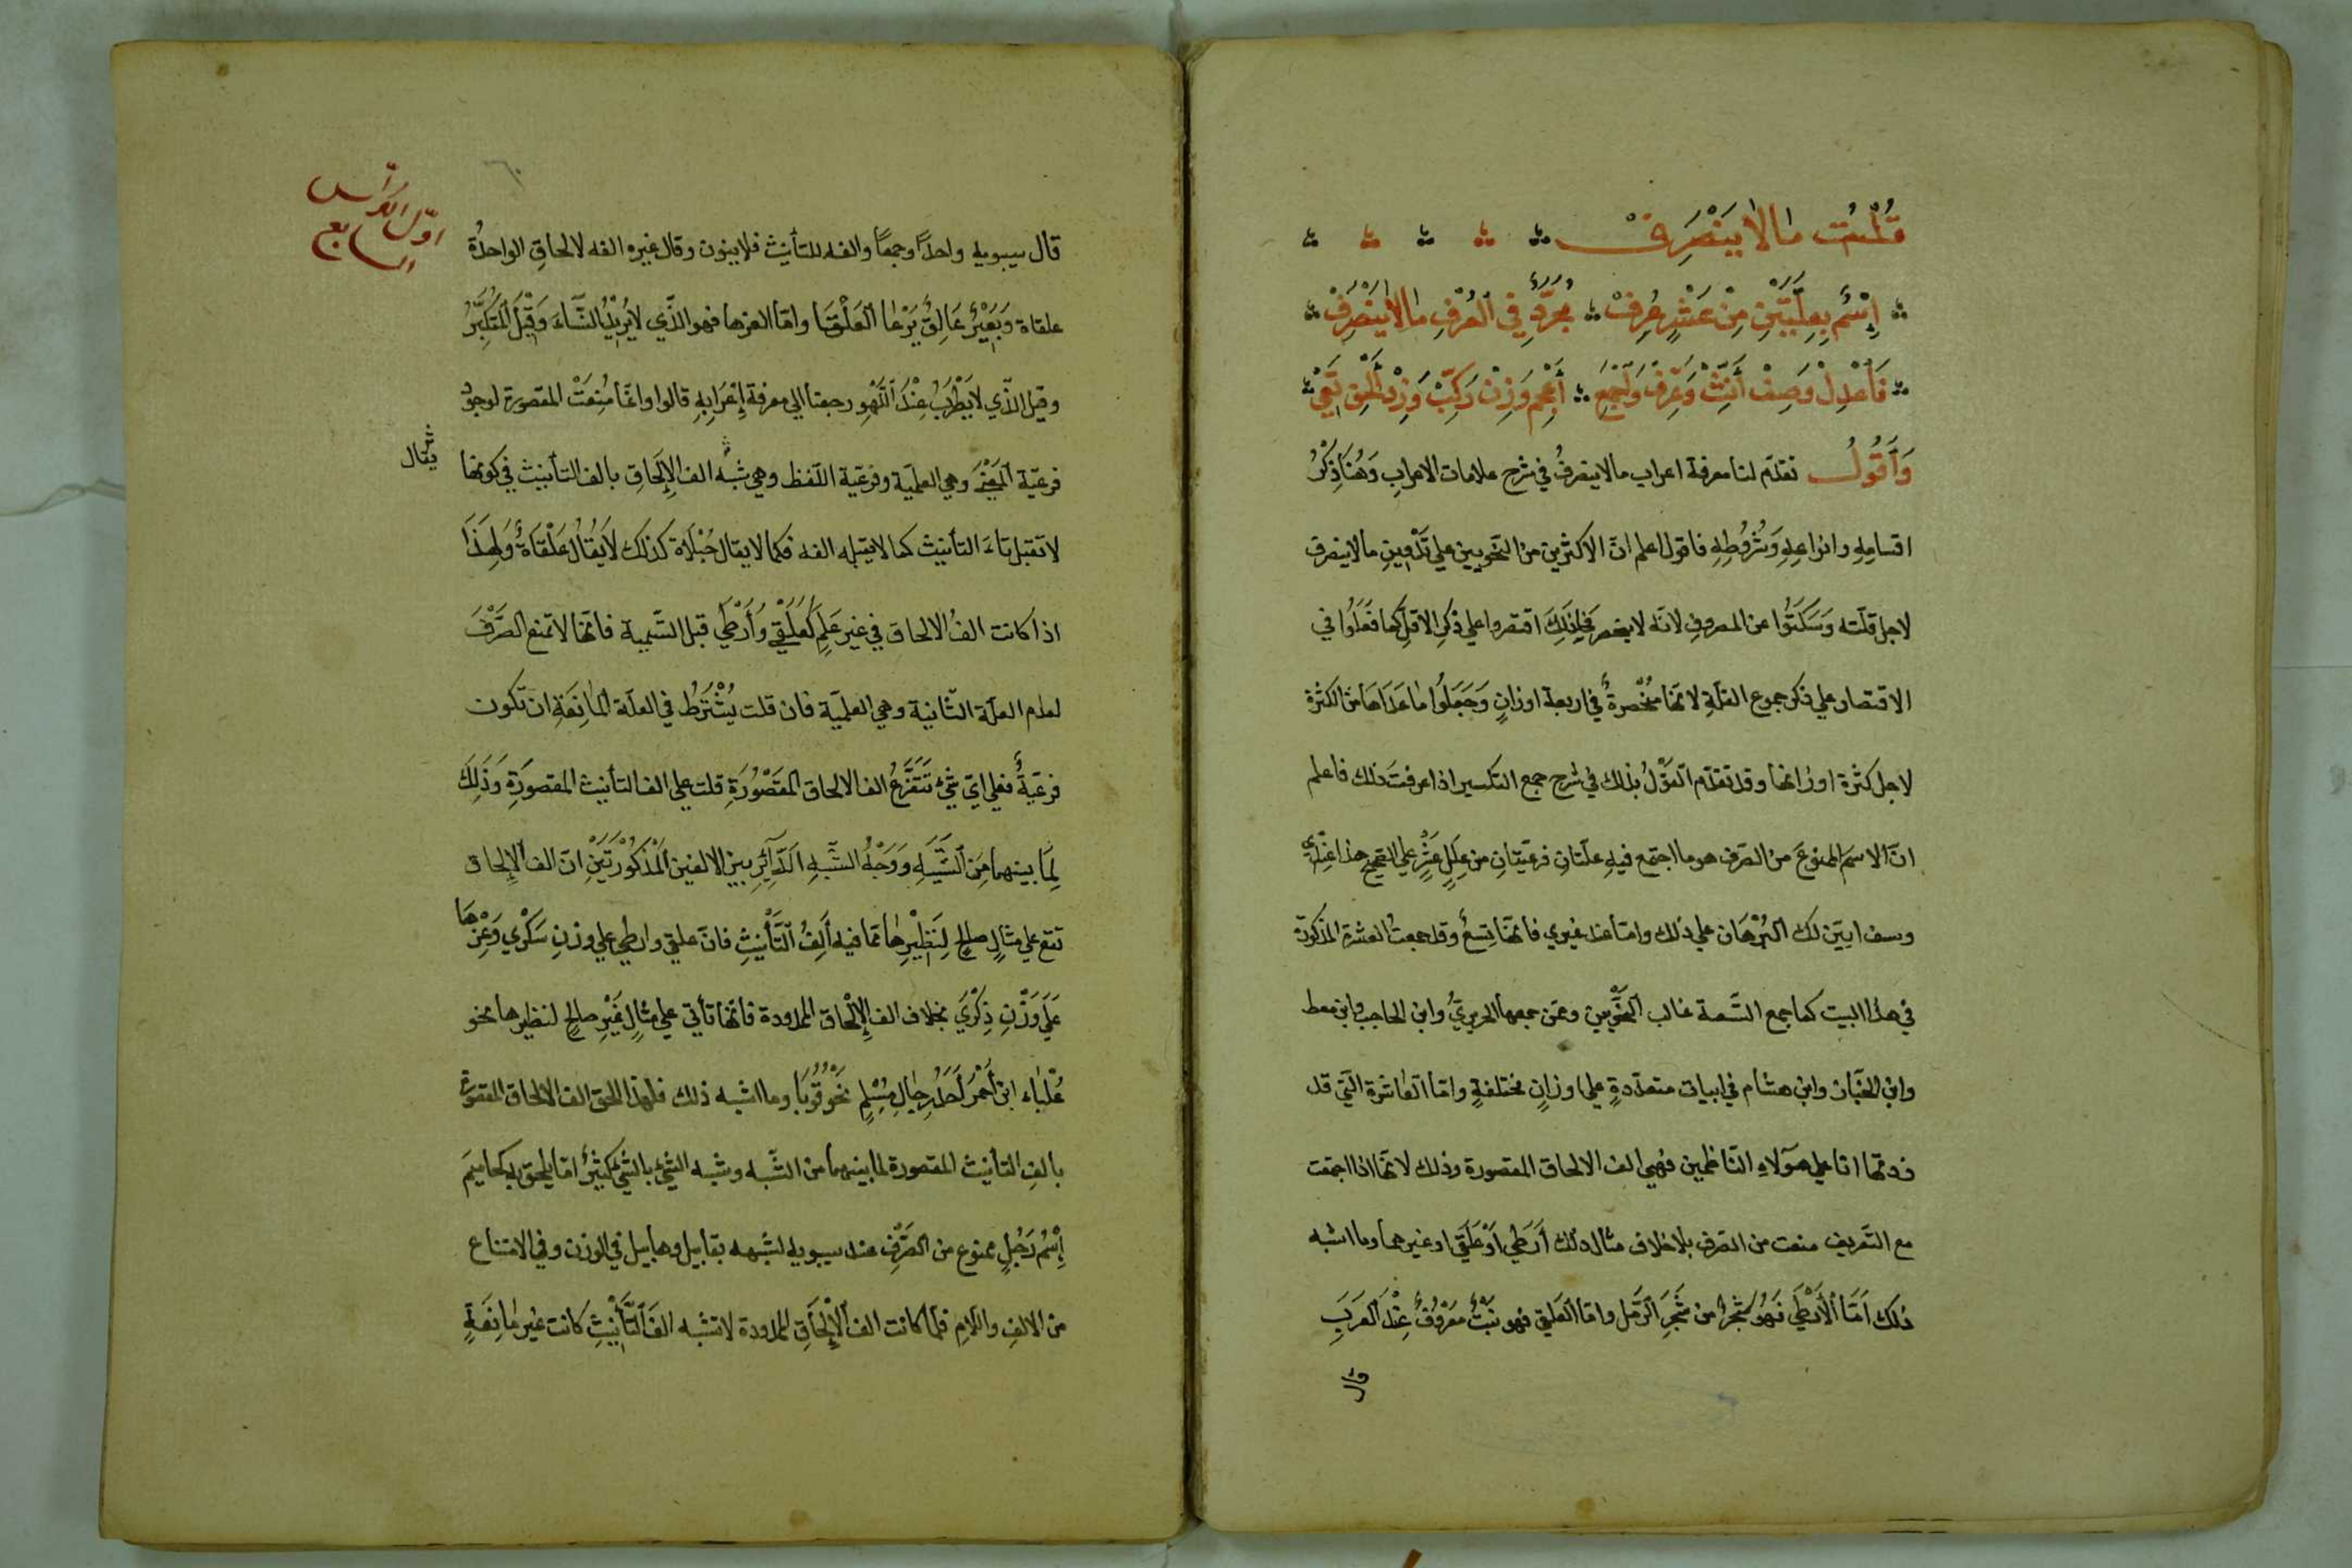 قُلْتُ مالا يَنْصَرِفْ
إِسْمٌ بِعِلَّتَيْنِ مِنْ عَشْرٍ عُرِفْ مُجَرَّدٍ فِي الْعُرْفِ مالا يَنْصَرِفْ
فَاعْدِلْ وَصِفْ أَنِّثْ وَعَرِّفْ وَاجْمَعِ أَعْجِمْ وَزِنْ رَكِّبْ وَزِدْ أَلْحِقْ تَعِي
وَأَقُولُ تقدّم لنا معرفة اعراب مالا ينصرفُ في شرح علامات الاعرابِ وَهُنَا ذِكْرُ
اقسامِهِ وانواعِهِ وَشُرُوطِهِ فاقول اعلم انّ الاكثرين من النّحويين علي تَدْوِينِ مالا ينصرف
لاجل قلّته وَسَكَتُوا عن المصروفِ لانّه لا ينحصر فَلِذَلِكَ اقتصروا علي ذكرِ الاقلّ كما فَعَلُوا في
الاقتصار علي ذكر جموع القلّةِ لانّها مُنْحَصِرةٌ في اربعة اوزانٍ وَجَعَلُوا ما عَدَاهَا من الكثرة
لاجل كثرة اوزانها وقد تقدّم القَوْلُ بذلك في شرح جمع التكسير اذا عرفتَ ذلك فاعلم
انّ الاسم الممنوعَ من الصّرف هو ما اجتمع فيهِ علّتانِ فرعيّتانِ من عِلَلٍ عَشْرٍ علي الصّحيح هذا عِنْدِي
وسف ابيّن لك البُرْهَان علي ذلك وامّا عند غيري فانّها تِسعٌ وقد جمعتُ العشرة المذكورة
في هذا البيت كما جمع التّسعة غالب النَّحْوِيّين وممّن جمعها الحريريُّ وابن الحاجب وابن معط
وابن الخبّاز وابن هشام في ابيات متعدّدةٍ علي اوزانٍ مختلفةٍ وامّا العاشرة الّتي قد
زدتها انا علي هؤلاءِ النّاظمين فهي الف الالحاق المقصورة وذلك لانّها اذا اجتمعت
مع التّعريف منعت من الصّرف بلا خلاف مثال ذلك أَرْطَي أَوْ عَلْقَي او غيرهما وما اشبه
ذلك اَمَّا الْأَرْطَي فَهُوَ شَجَرٌ من شَجَرِ الرّمل وامّا العَلْقَي فهو نَبْتٌ مَعْرُوْفٌ عِنْدَ الْعَرَبِ
قال
اوّل الكرّاس
السابع
٦٠
قال سيبويه واحدًا وجمعًا والفه للتأنيث فلا ينون وقال غيره الفه لالحاقِ الواحدةُ
علقاة وَبَعِيْرٌ عَالِقٌ يَرْعَا الْعَلْقَا وامّا العزها فهو الّذي لا يُرِيْدُ النّساءَ وَقِيْلَ الْمُتَكَبِّرُ
وقيل الّذي لا يَطْرَبُ عِنْدَ اللَّهْوِ رجعنا الي معرفة إِعْرَابِهِ قالوا وانّما مُنِعَتْ المقصورة لوجودِ
فرعيّة الْمَعْنَي وهي العلميّة وفرعيّة اللّفظ وهي شبْه الف الإلحاق بالف التأنيث في كونها
يقال
لا تقبل تاءَ التأنيث كما لا يقبله الفه فكما لا يقال حُبْلَاة كذلك لا يُقَالُ عَلْقَاةٌ وَلِهَذَا
اذا كانت الفُ الالحاق في غير عَلَمٍ كَعَلْقَي وَأَرْطَي قبل التّسمية فانّها لا تمنع الصَّرْفَ
لعدم العلّة الثّانية وهي العلميّة فان قلت يُشْتَرَطُ في العلّة الْمَانِعَةِ ان تكون
فرعيّةً فعلي ايّ شَيْءٍ تَتَفَرَّعُ الف الالحاق المَقْصُوْرَةِ قلت علي الف التأنيث المقصورَةِ وَذَلِكَ
لِمَا بينهما مِنَ الشَّبَهِ وَوَجْهُ الشَّبَهِ الدَّآئِرِ بين الالفين الْمَذْكُوْرَتَيْنِ انّ الف الإلحاق
تقع علي مثالٍ صالحٍ لِنَظِيْرِهَا ممّا فيه أَلِفُ التَّأْنِيْثِ فانّ علقي وارطي علي وزن سَكْرَي وَعِزْهَا
عَلَي وَزْنِ ذِكْرَي بخلاف الف الإِلْحَاق الممدودة فانّها تأتي علي مثالٍ غَيْرِ صالحٍ لنظيرها نحو
عُلْبَاء ابن أَحْمَرَ أَحَدُ رِجَالِ مُسْلِمٍ نَحْوُ قُوْبَا وما اشبه ذلك فلهذا الحق الف الالحاق المقصورة
بالف التأنيث المقصورة لما بينهما من الشّبه وشبه الشّيء بالشّيء كَثِيْرٌ امّا يلحق به كحاميم
إِسْمُ رَجُلٍ ممنوع من الصّرف عند سيبويه لشبهه بقابيل وهابيل في الوزن وفي الامتناع
من الالفِ واللّامِ فلمّا كانت الف الْإِلْحَاقِ الممدودة لا تشبه الفَ التَّأْنِيْثِ كانت غَيْرَ مَانِعَةٍ